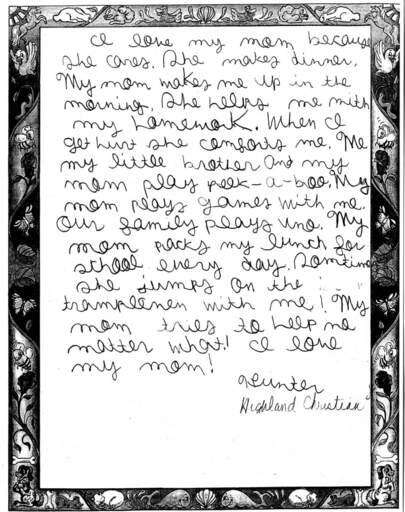 I love my mom because
she cares. She makes dinner.
My mom wakes me up in the
morning. She helps me with
my homework. When I
get hurt she comforts me. Me
my little brother and my
mom play peek-a-boo. My
mom plays games with me.
Our family plays uno. My
mom packs my lunch for
school every day. Somtime
she jumps on the
tramplenen with me! My
mom tries to help no
matter what! I love
my mom!
Hunter
Highland Christian